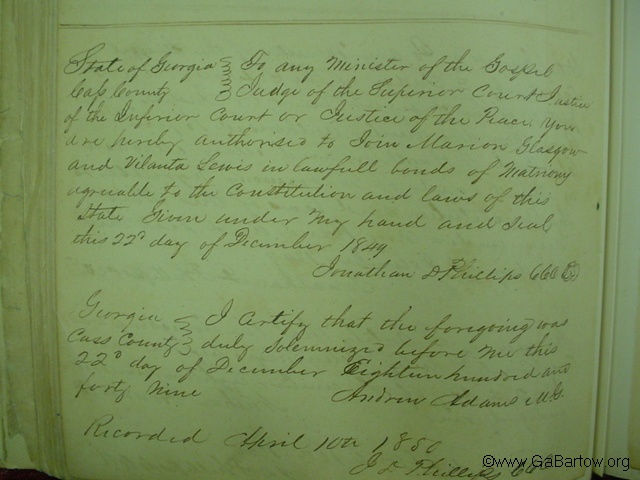 State of Georgia To any Minister of the Gospel
Cass County Judge of the Superior Court Justice
of the Inferior Court or Justice of the Peace you
are hereby authorised to Join Marion Glasgow
and Vilanta Lewis in lawfull bonds of Matrimony
agreeable to the Constitution and laws of this
State Given under my hand and Seal
this 22d day of December 1849
Jonathan D Phillips CCO
Georgia I Certify that the foregoing was
Cass County duly Solemnized before me this
22d day of December Eighteen hundred and
forty Nine Andrew Adams M.G.
Recorded April 10th 1850
J D Phillips CCO
©www.GaBartow.org